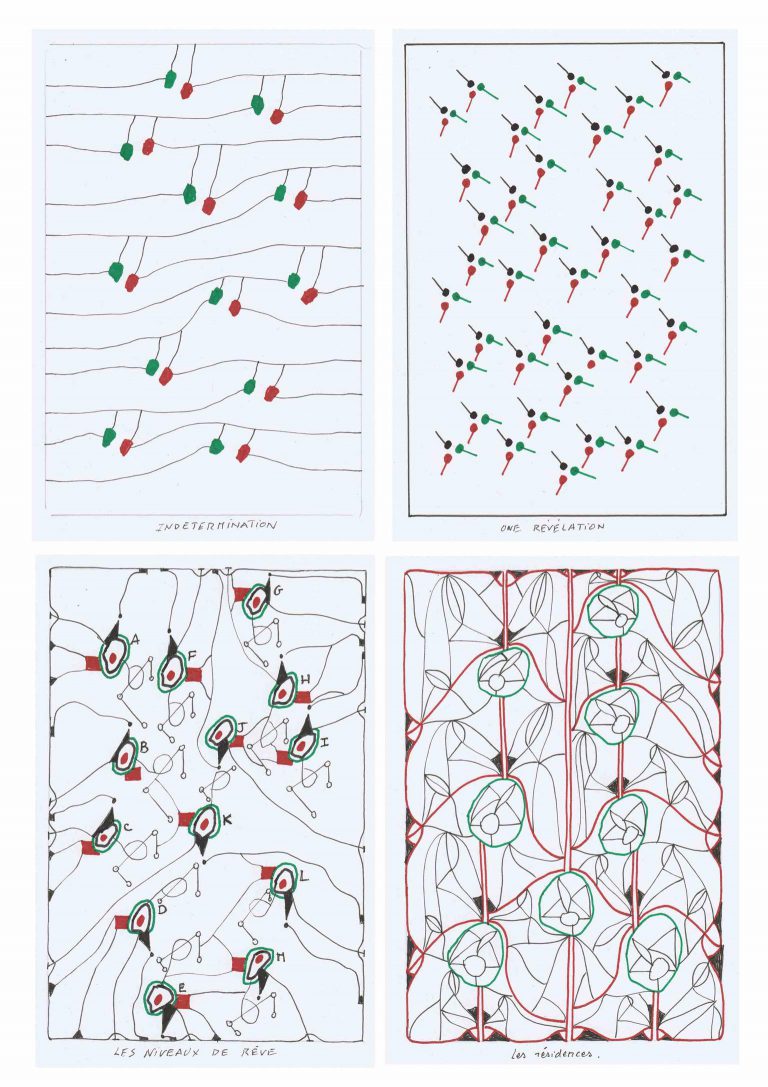 INDETERMINATION
ONE RÉVÉLATION
G
A
F
H
J
I
B
K
C
L
D
M
E
LES NIVEAUX DE RÊVE
Les résidences.